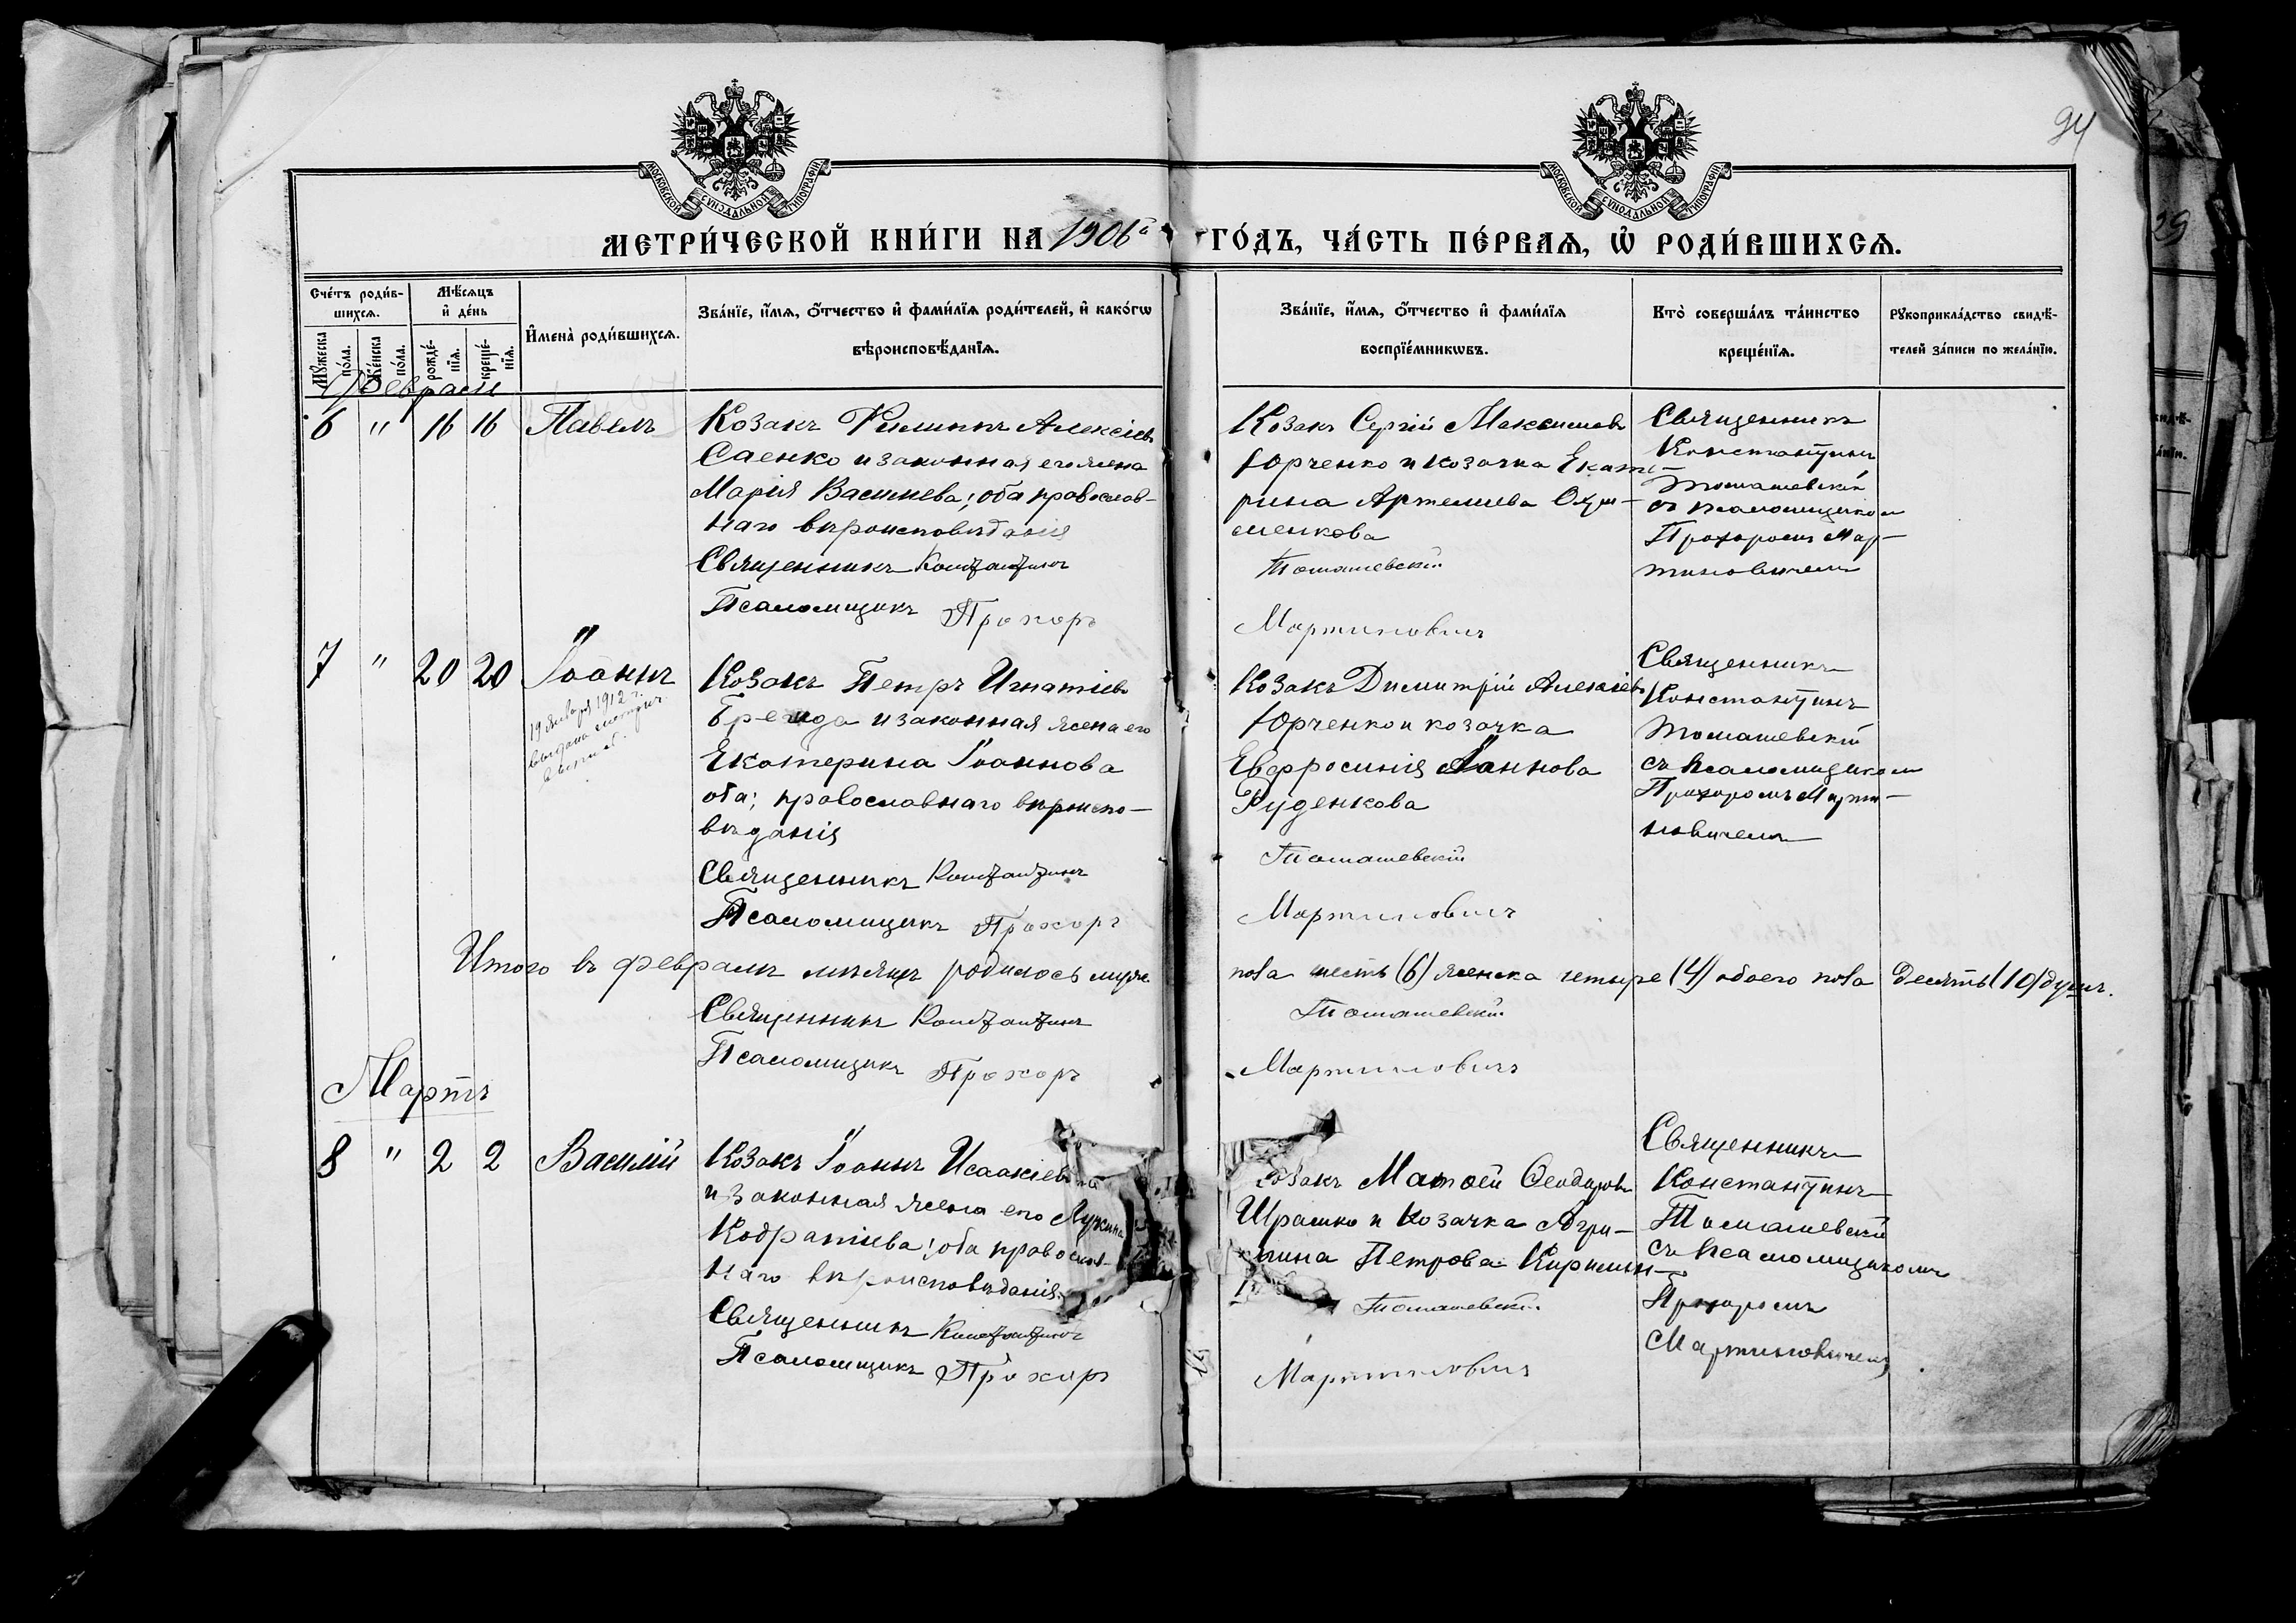 94
МОСКОВСКОЙ СУНОДАЛЬНОЙ ТИПОГРАФІИ
МОСКОВСКОЙ СУНОДАЛЬНОЙ ТИПОГРАФІИ
МЕТРИ́ЧЕСКОЙ КНИ́ГИ НА 1906й ГО́ДЪ, ЧА́СТЬ ПЕ́РВАЯ, Ѡ РОДИ́ВШИХСЯ.
Сче́тъ роди́в-
шихся.
Мѣ́сяцъ
и́ де́нь
Мꙋ́жеска
по́ла.
Же́нска
по́ла.
рожде́-
нїя.
креще́-
нїя.
И҆мена̀ роди́вшихся.
Зва́нїе, и҆́мя, ѻ҆́тчество и҆ фами́лїя роди́телей, и҆ како́гѡ
вѣроисповѣ́данїя.
Зва́нїе, и҆́мя, ѻ҆́тчество и҆ фами́лїя
воспрїе́мникѡвъ.
Кто̀ соверша́лъ та́инство
креще́нїя.
Рꙋкоприкла́дство свидѣ́-
телей за́писи по жела́нїю.
Февраль
6 " 16 16 Павелъ
Козакъ Филиппъ Алексіевъ
Саенко и законная его жена
Марія Василиева; оба православ-
наго вѣроисповѣданія
Священникъ Константинъ
Псаломщикъ Прохоръ
Козакъ Сергій Максимовъ
Юрченко и козачка Екате-
рина Артемиева
менкова
Томашевскій
Мартиновичъ
Священникъ
Константинъ
Томашевскій
съ псаломщикомъ
Прохоромъ Мар-
тиновичемъ
7 " 20 20 Іоаннъ
19 января 1912 г.
выдана метрич.
выпись.
Козакъ Петръ Игнатіевъ
и законная жена его
Екатерина Іоаннова
оба; православнаго вѣроиспо-
вѣданія
Священникъ Константинъ
Псаломщикъ Прохоръ
Козакъ Димитрій Алексіевъ
Юрченко и козачка
Евфросинія Іоаннова
Руденкова
Томашевскій
Мартиновичъ
Священникъ
Константинъ
Томашевскій
съ псаломщикомъ
Прохоромъ Марти-
новичемъ
Итого въ февралѣ мѣсяцѣ родилось муже
пола шесть (6) женска четыре (4) обоего пола десять (10) душъ.
Священникъ Константинъ Томашевскій
Псаломщикъ Прохоръ Мартиновичъ
Мартъ
8 " 2 2 Василій
Козакъ Іоаннъ Исаакіевъ
и законная жена его
Кодратіева; оба православ-
наго вѣроисповѣданія
Священникъ Константинъ
Псаломщикъ Прохоръ
Козакъ Матѳей Ѳеодоровъ
Ирашко и козачка Агри-
пина Петрова
Томашевскій
Мартиновичъ
Священникъ
Константинъ
Томашевскій
съ псаломщикомъ
Прохоромъ
Мартиновичемъ